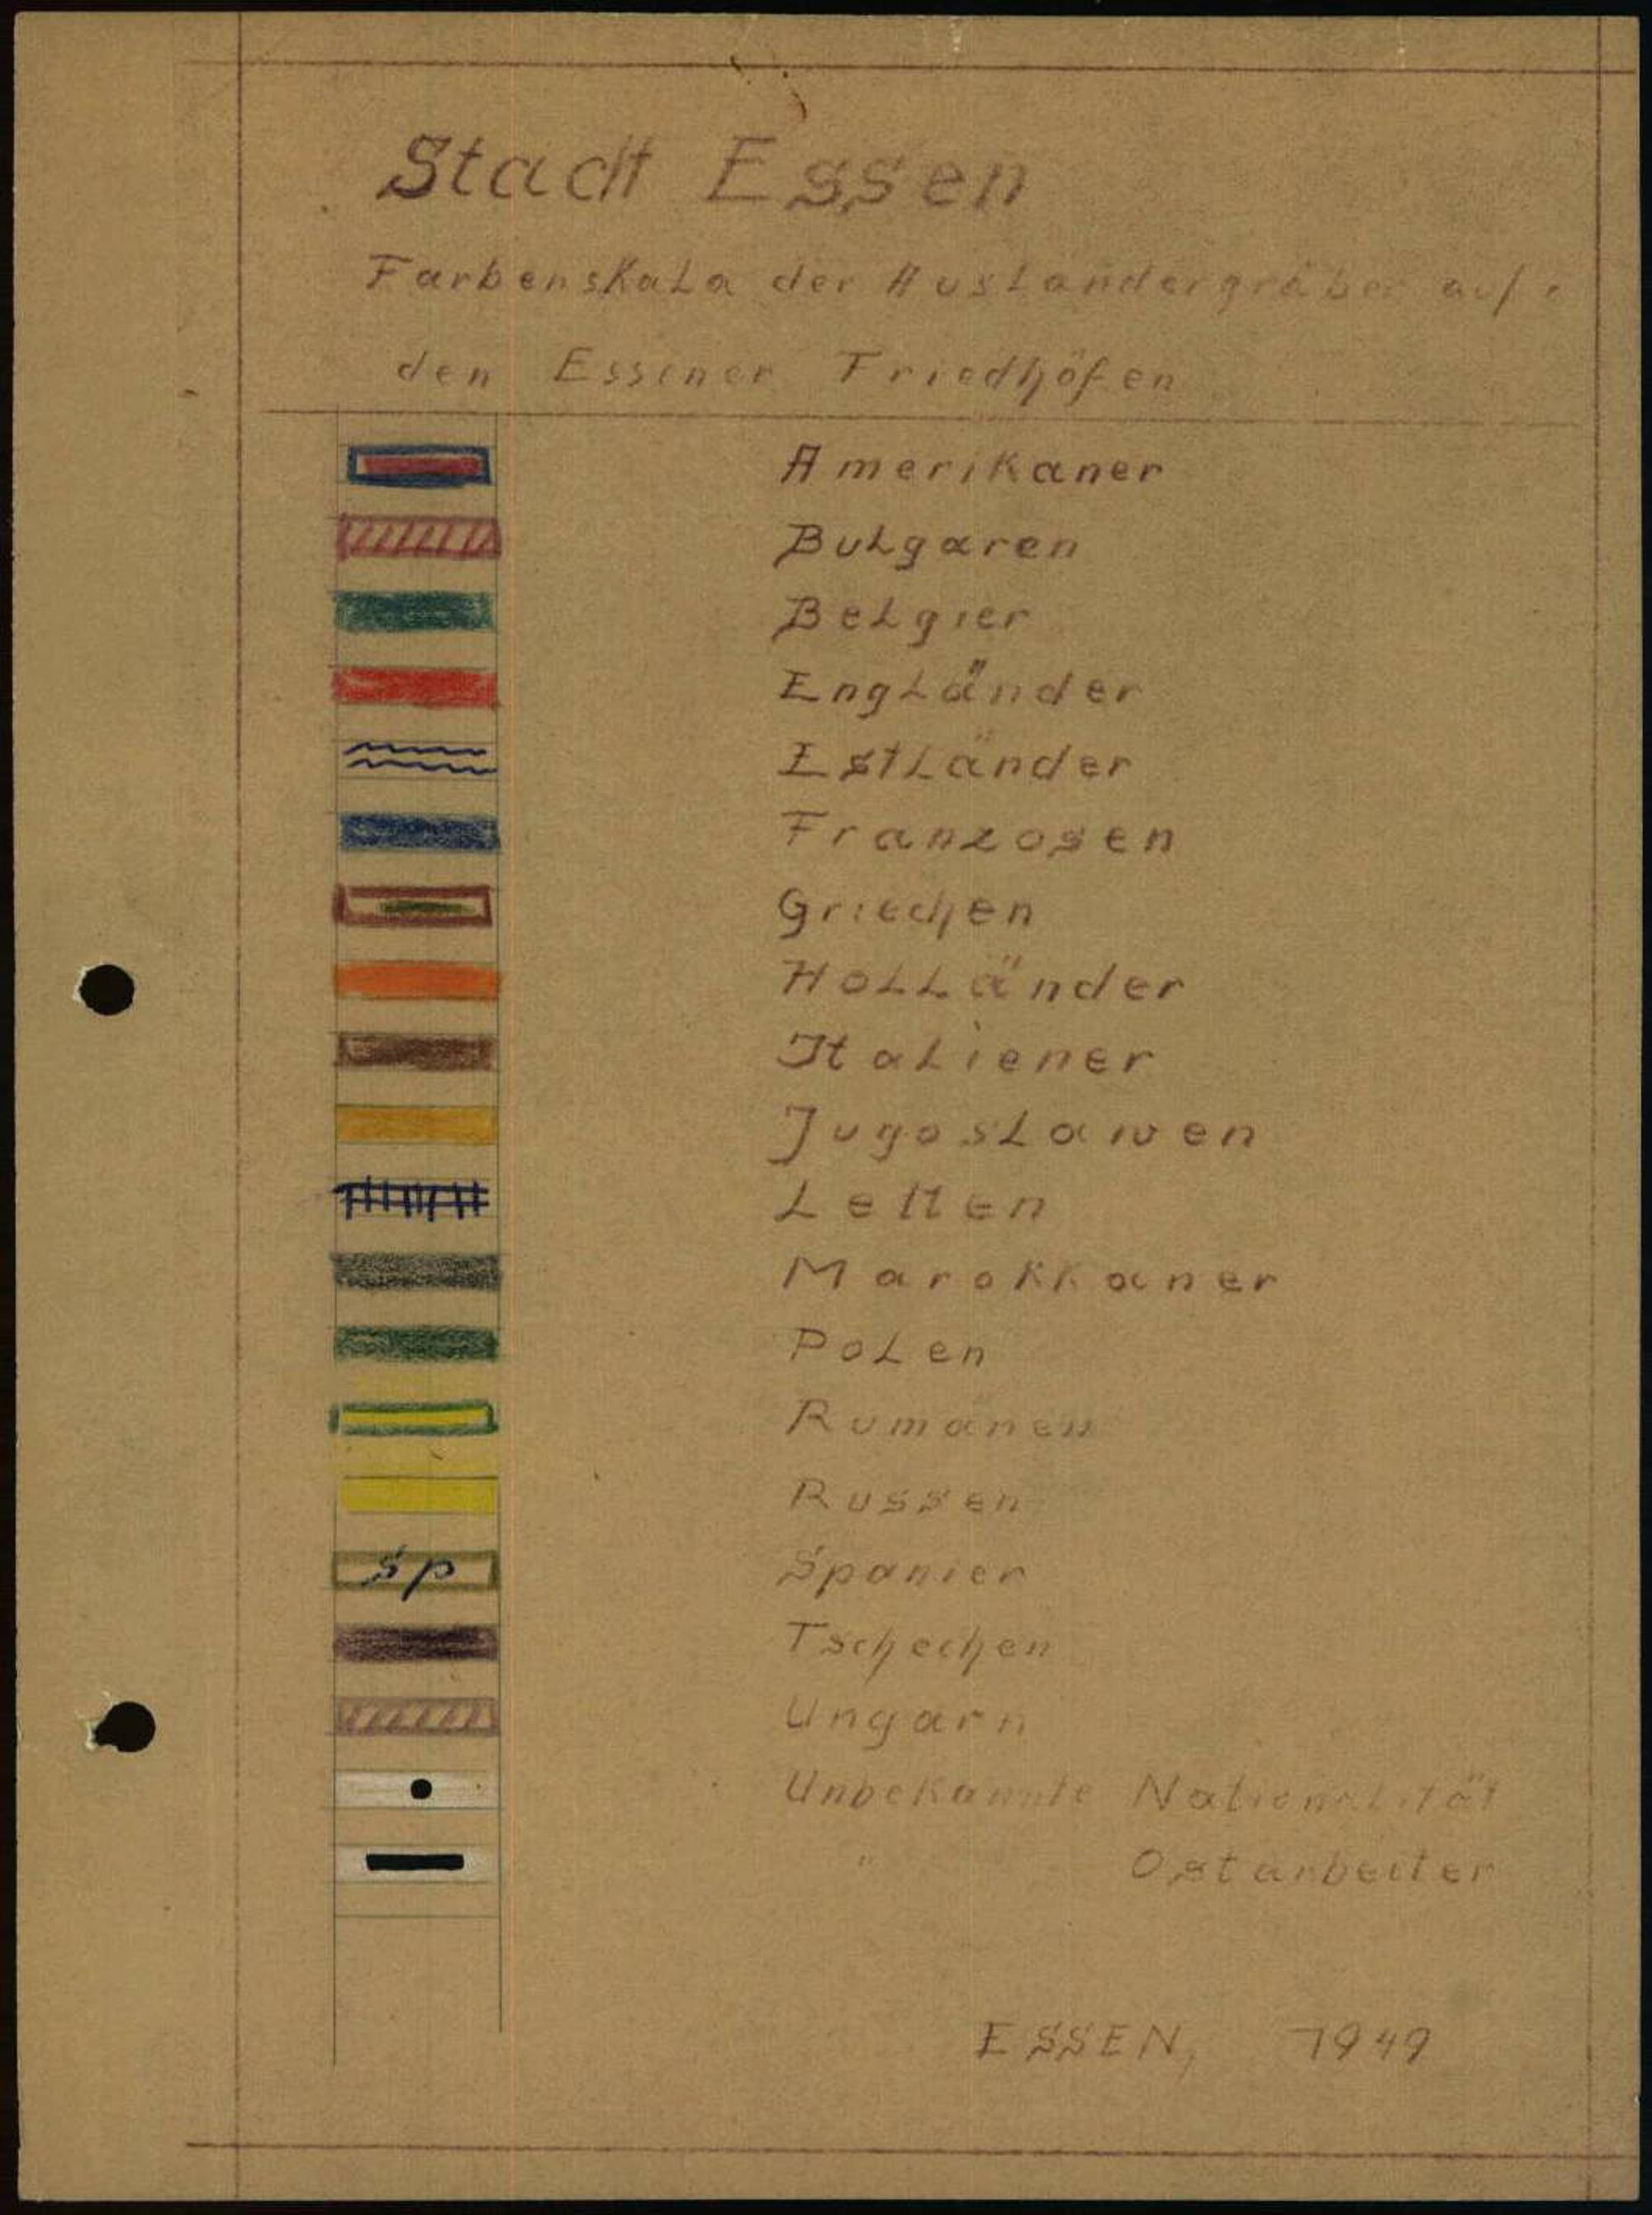 Stadt Essen
Farbenskala der Ausländergräber auf
den Essener Friedhöfen
Amerikaner
Bulgaren
Belgier
Engländer
Estländer
Franzosen
Griechen
Holländer
Italiener
Jugoslawen
Letten
Marokkaner
Polen
Rumänen
Russen
Sp Spanier
Tschechen
Ungarn
Unbekannte Nationalität
" Ostarbeiter
ESSEN, 1949